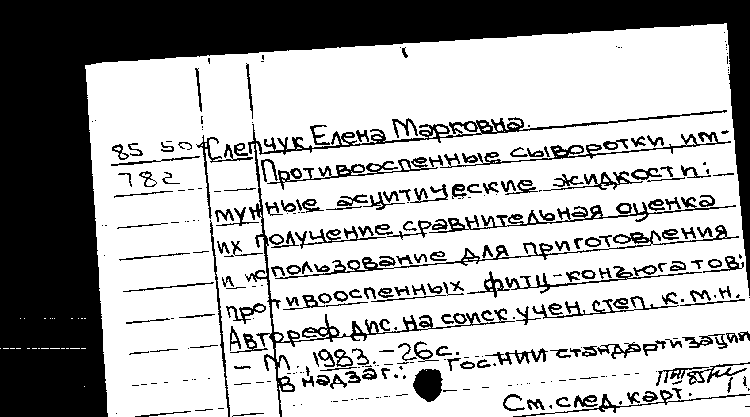 85 50 Слепчук, Елена Марковна.
782 Противооспенные сыворотки, им-
мунные асцитические жидкости:
их получение, сравнительная оценка
и использование для приготовления
противооспенных фитц-конъюгатов:
Автореф. дис. на соиск. учен. степ. к.м.н.
– М., 1983. – 26 с.
В надзаг.: Гос. НИИ стандартизации
См. след. карт.